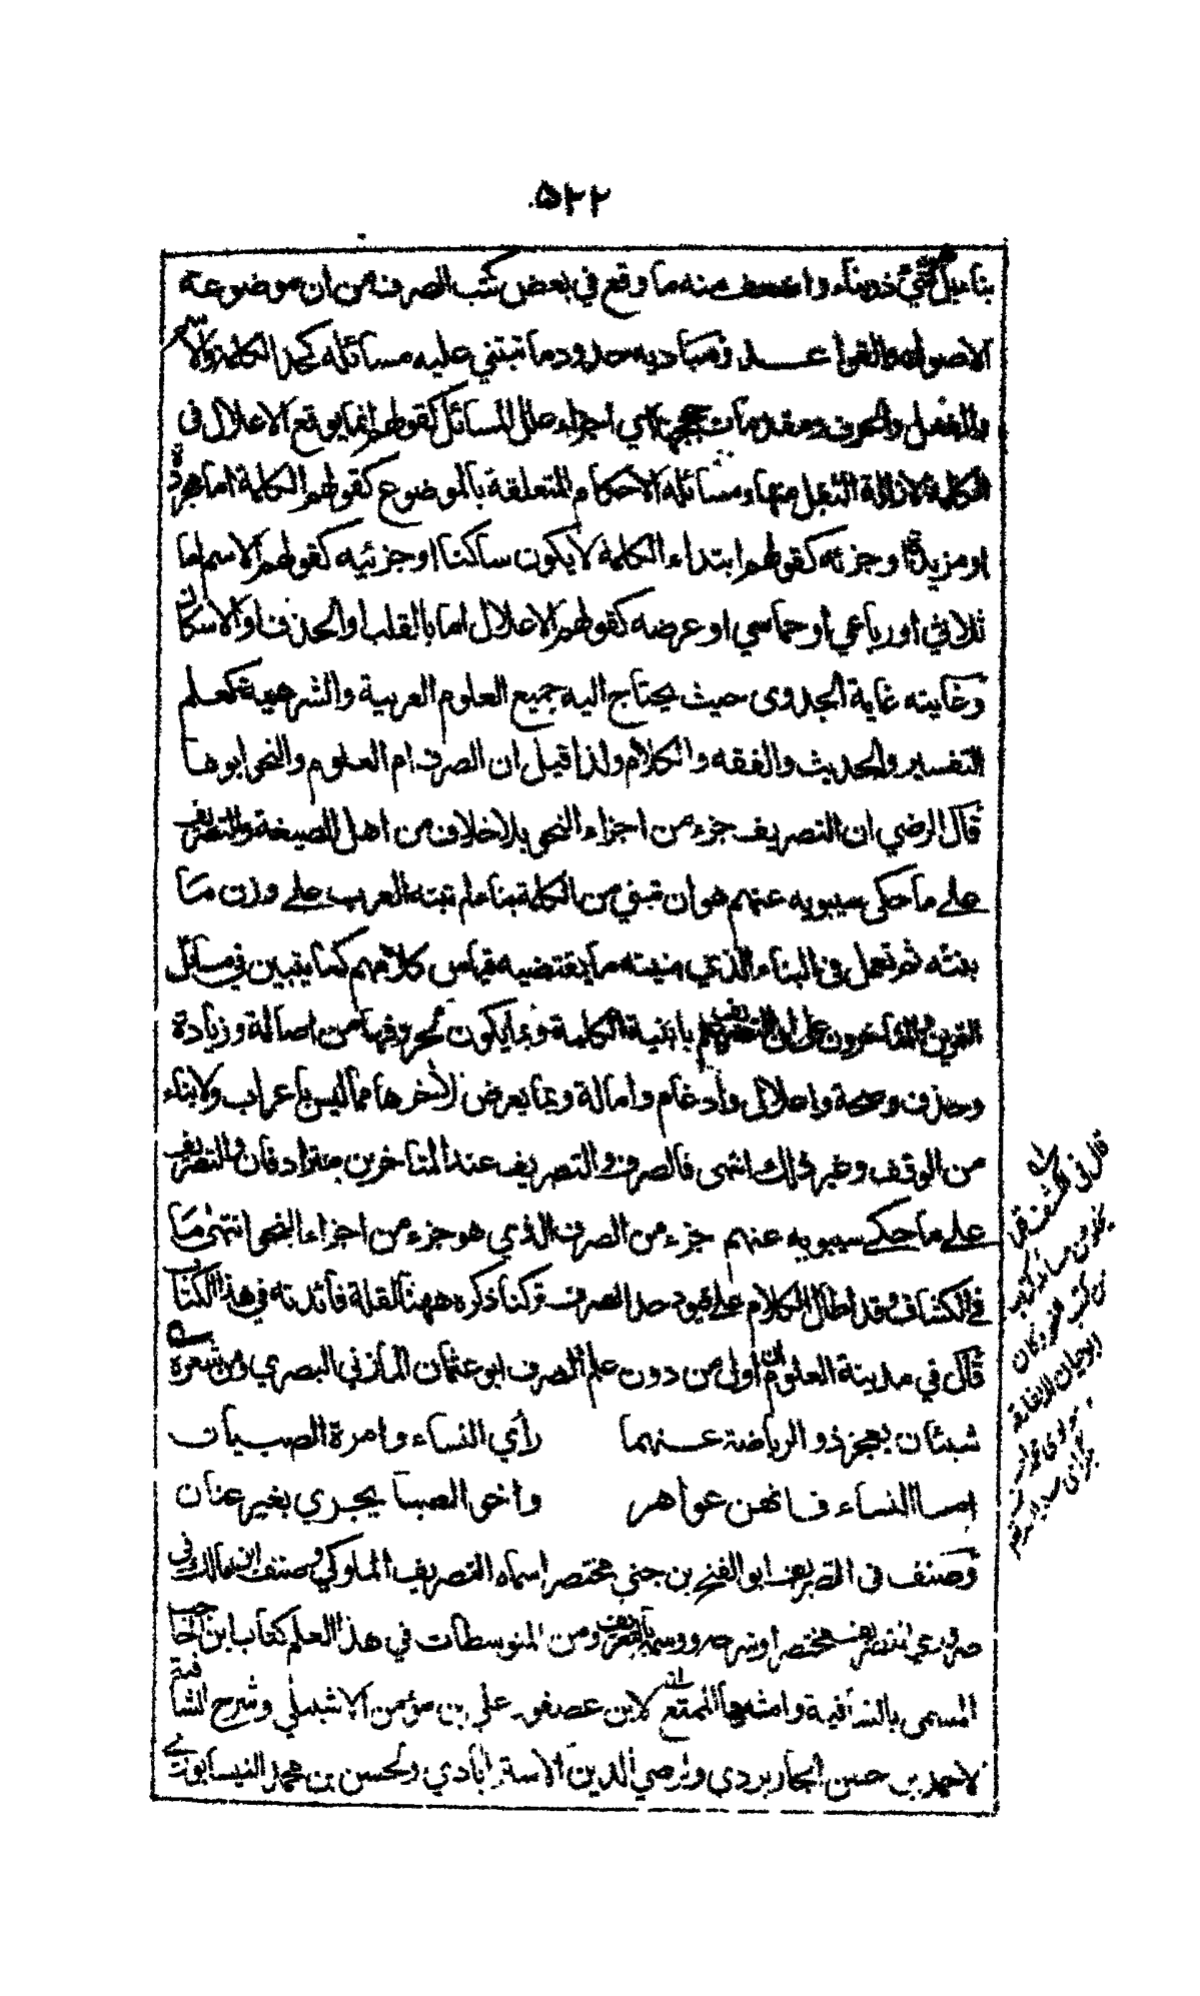 ٥٢٢
بناء كل شيء ذو بناء واضعف منه ما وقع في بعض كتب الصرف من ان موضوعه
الاصول والقواعد ومباديه حدود ما تبتني عليه مسائله كحد الكلمة والاسم
والفعل والحرف ومقدمات حججها اي اجزاء علل المسائل كقولهم انما يوقع الاعلال في
الكلمة لازالة الثقل منها ومسائله الاحكام المتعلقة بالموضوع كقولهم الكلمة اما مجردة
او مزيدة او جزئه كقولهم ابتداء الكلمة لا يكون ساكنا او جزئيه كقولهم الاسم اما
ثلاثي او رباعي او خماسي او عرضه كقولهم الاعلال اما بالقلب او الحذف او الاسكان
وغايته غاية الجدوى حيث يحتاج اليه جميع العلوم العربية والشرعية كعلم
التفسير والحديث والفقه والكلام ولذا قيل ان الصرف ام العلوم والنحو ابوها
قال الرضي ان التصريف جزء من اجزاء النحو بلا خلاف من اهل الصيغة والتصريف
على ما حكى سيبويه عنهم هو ان تبني من الكلمة بناء لم تبنه العرب على وزن ما
بنته ثم تعمل في البناء الذي بنيته ما يقتضيه قياس كلامهم كما يتبين في مسائل
التمرين والمتاخرون على ان التصريف علم بابنية الكلمة وبما يكون لحروفها من اصالة وزيادة
وحذف وصحة واعلال وادغام وامالة وبما يعرض لآخرها مما ليس باعراب ولا بناء
من الوقف وغير ذلك انتهى فالصرف والتصريف عند المتاخرين مترادفان والتصريف
على ما حكى سيبويه عنهم جزء من الصرف الذي هو جزء من اجزاء النحو انتهى ما
في الكشاف وقد اطال الكلام على قيود حد الصرف تركنا ذكره ههنا لقلة فائدته في هذا الكتاب
قال في مدينة العلوم ان اول من دون علم الصرف ابو عثمان المازني البصري ومن شعره
شيئان يعجز ذو الرياضة عنهما راي النساء وامرة الصبيان
اما النساء فانهن عواهر واخو الصبا يجري بغير عنان
وصنف في التصريف ابو الفتح بن جني مختصرا سماه التصريف الملوكي وصنف ابن مالك في
التصريف مختصرا وشرحه وسماه بالتعريف ومن المتوسطات في هذا العلم كتاب ابن الحاجب
المسمى بالشافية وامثلها الممتع لابن عصفور علي بن مؤمن الاشبيلي وشرح الشافية
لاحمد بن حسن الجاربردي ولرضي الدين الاستراباذي ولحسن بن محمد النيسابوري